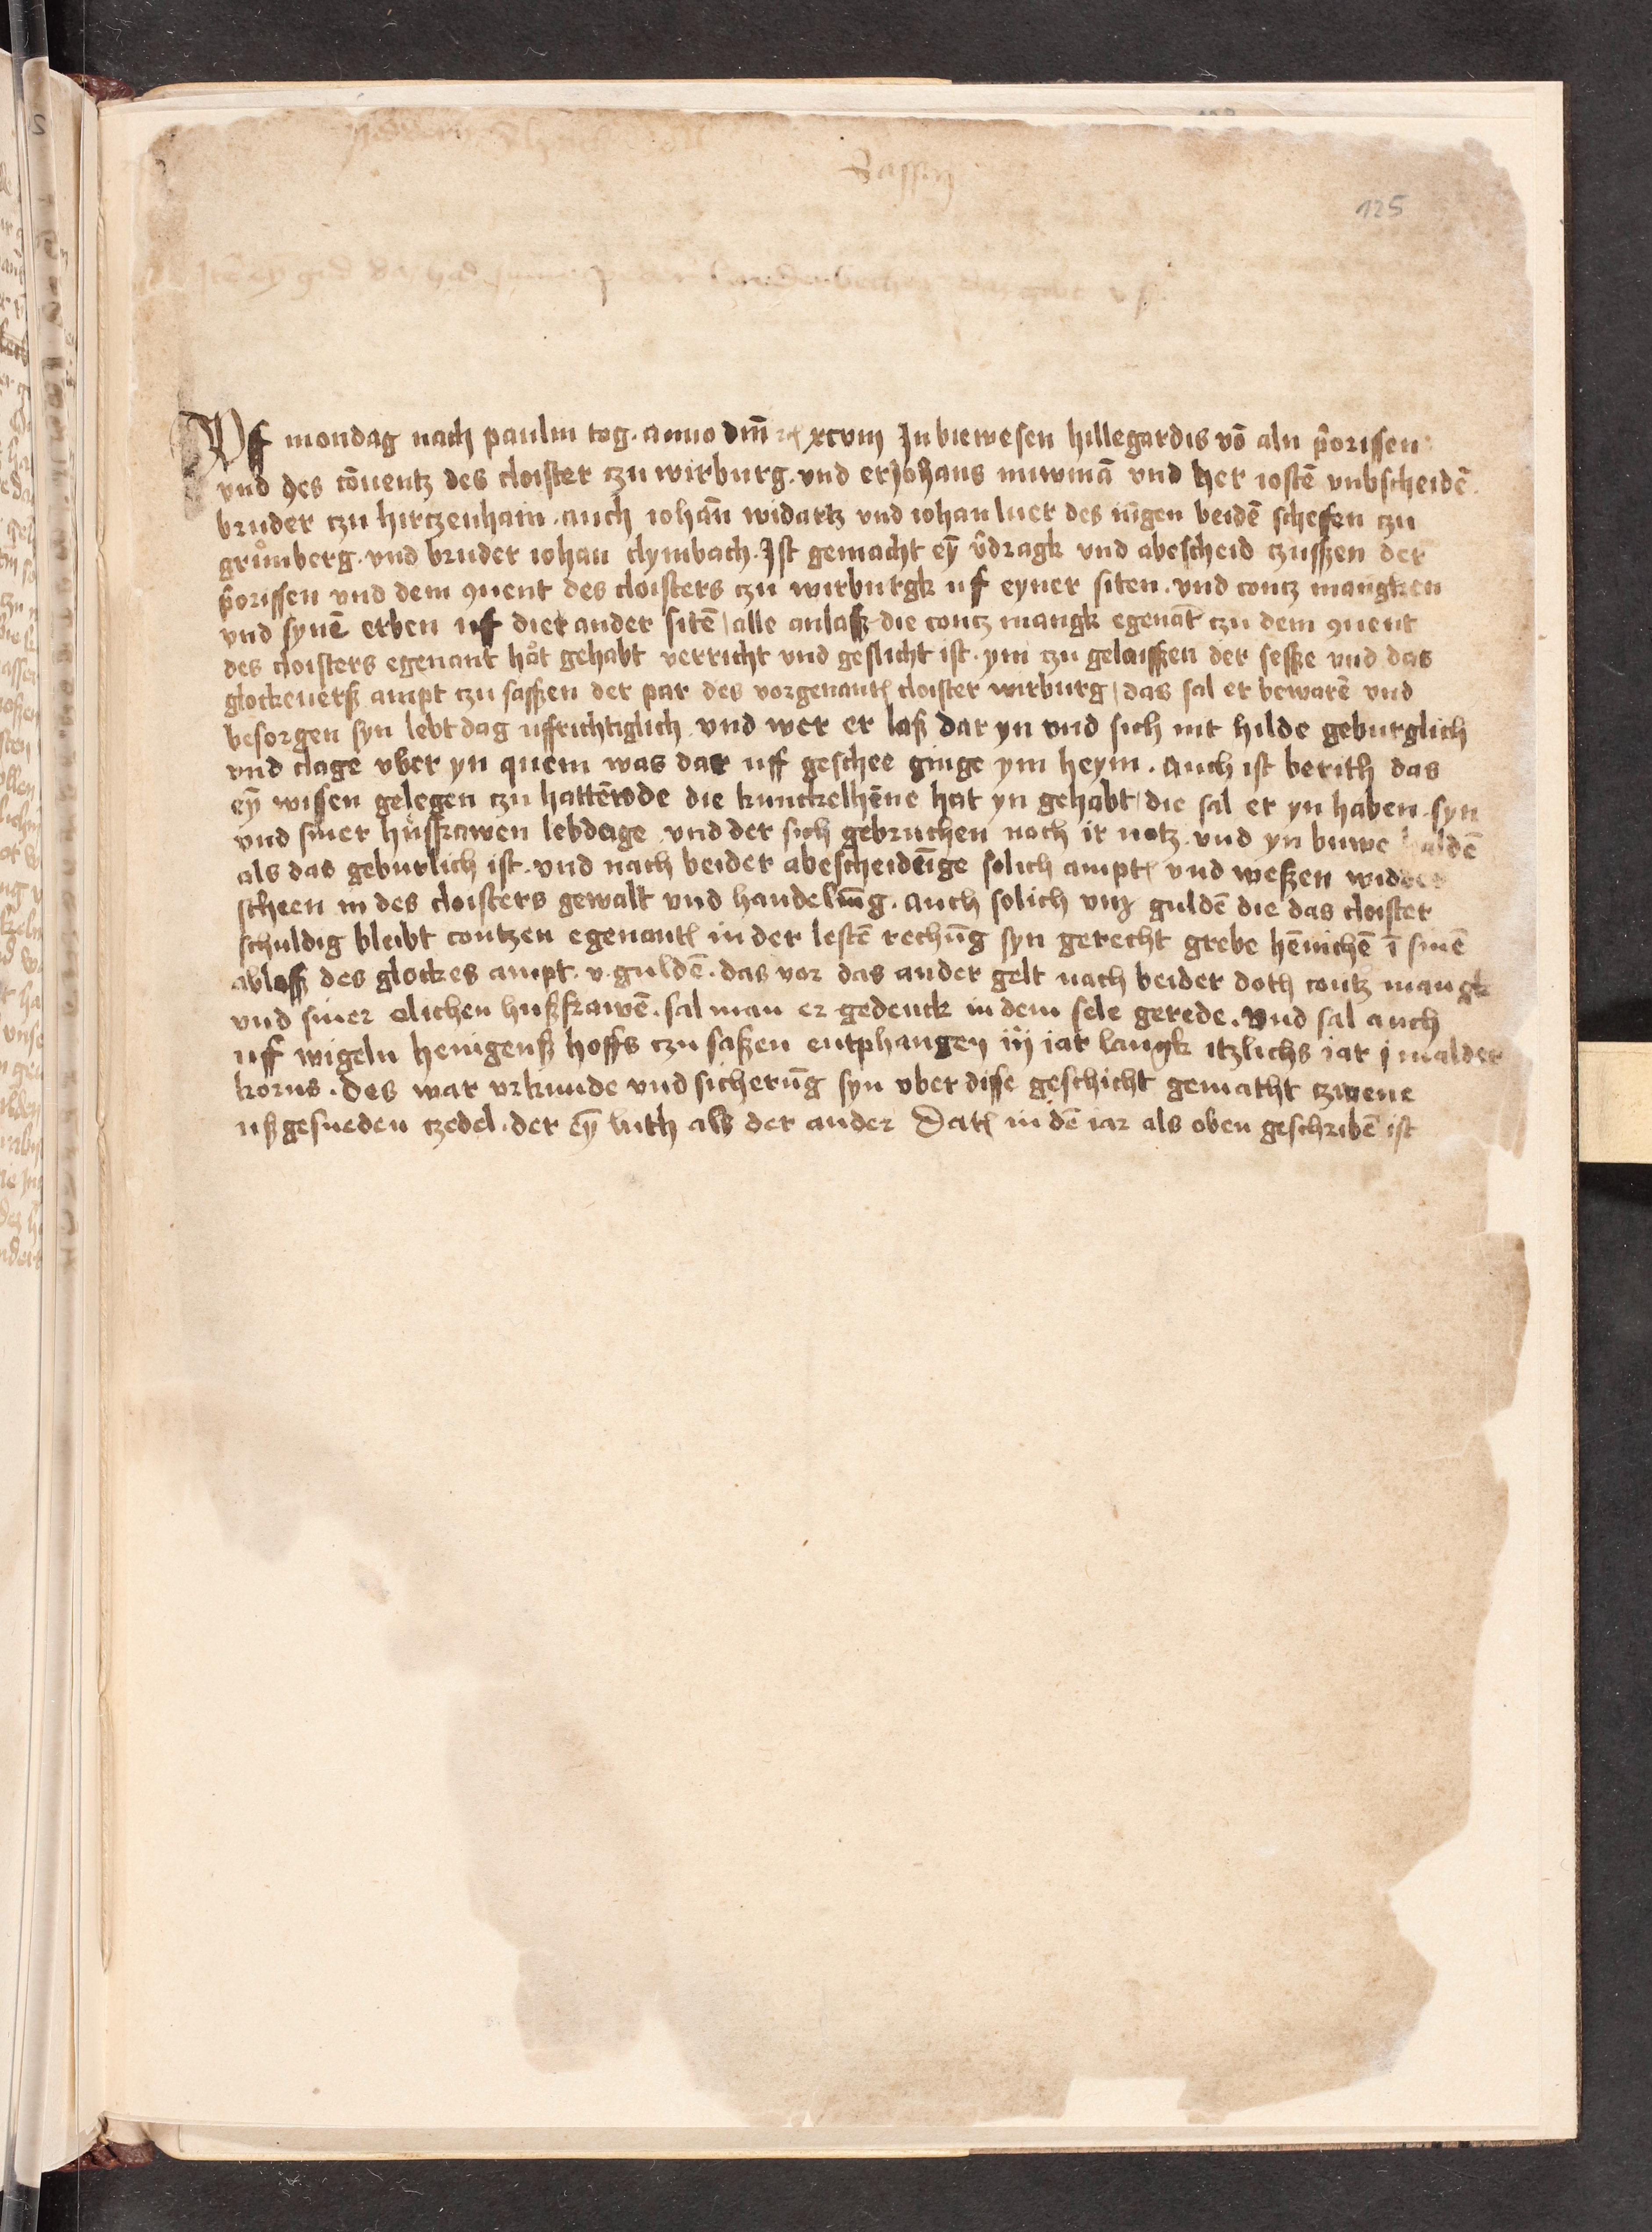 Sassen
125
Vff mondag nach paulin tog. anno dm̄ ꝛc xcviij Jn biewesen hillegardis vō aln p̄orissen
vnd des cōuentz des cloister tzu wirburg. vnd er Johans nuwmā vnd her iostē vnbscheidē
bruder tzu hirtzenhain. auch iohañ widartz vnd iohan luer des iūgen beidē schefen tzu
grůnberg. vnd bruder iohan clymbach. Jst gemacht eȳ v̄dragk vnd abescheid tzusszen der
p̄orissen vnd dem ꝯuent des cloisters tzu wirburgk uf eyner siten. vnd contz mangken
vnd synē erben uf dier ander sitē / alle anlasz die contz mangk egenāt tzu dem ꝯuent
des cloisters egenant hat gehabt verricht vnd geslicht ist. ym tzu gelaisszen der sesße vnd das
glockenersz ampt tzu sasszen der par des vorgenantꝭ cloister wirburg / das sal er bewarē vnd
besorgen syn lebtdag uffrichtiglich. vnd wer er lasz dar yn vnd sich nit hilde geburglich
vnd clage vber yn quem was dar uff geschee ginge ym heym. Auch ist berith das
eȳ wissen gelegen tzu hattērode die kunckelhēne hat yn gehabt / die sal er yn haben. syn
vnd siner hůsfrawen lebdage. vnd der sich gebruchen noch ir notz. vnd yn buwe haldē
als das geburlich ist. vnd nach beider abescheidūge solich amptꝭ vnd weszen widder
scheen in des cloisters gewalt vnd handelung. Auch solich viij guldē die das cloister
schuldig bleibt contzen egenantꝭ in der lestē rechūg syn gerecht grebe hēnichē ī sinē
ablasz des glockes ampt. v. guldē. das vor das ander gelt nach beider doth contz mangk
vnd siner elichen huszfrawē. sal man er gedenck in dem sele gerede. vnd sal auch
uf wigeln henigensz hoffs tzu saszen entphangen iij iar langk itzlichs iar j malder
korns. des war vrkunde vnd sicherūg syn vber disse geschicht gematht tzwene
uszgesneden tzedel. der eȳ luth als der ander Datꝭ in dē iar als oben geschribē ist